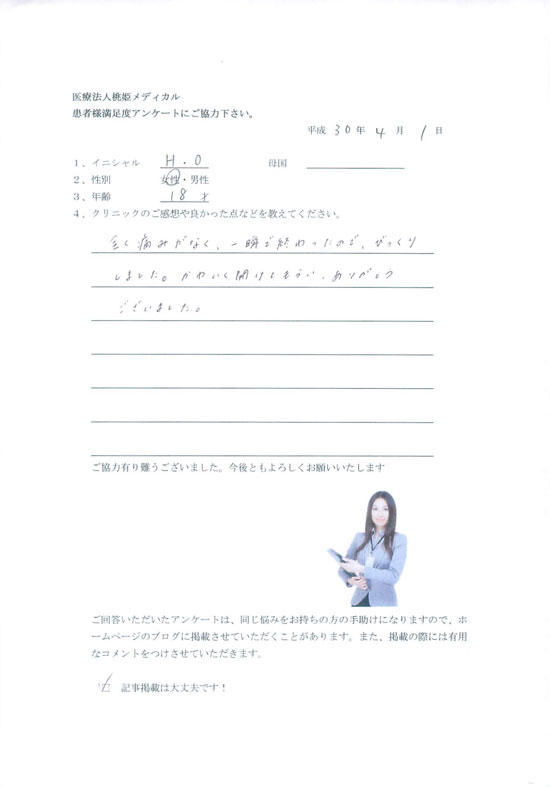 医療法人桃姫メディカル
患者様満足度アンケートにご協力下さい。
平成 30 年 4 月 1 日
1、イニシャル H.O 母国
2、性別 女性・男性
3、年齢 18 才
4、クリニックのご感想や良かった点などを教えてください。
全く痛みがなく、一瞬で終わったので、びっくり
しました。かわいく開けてもらい、ありがとう
ございました。
ご協力有り難うございました。今後ともよろしくお願いいたします
ご回答いただいたアンケートは、同じ悩みをお持ちの方の手助けになりますので、ホ
ームページのブログに掲載させていただくことがあります。また、掲載の際には有用
なコメントをつけさせていただきます。
記事掲載は大丈夫です！